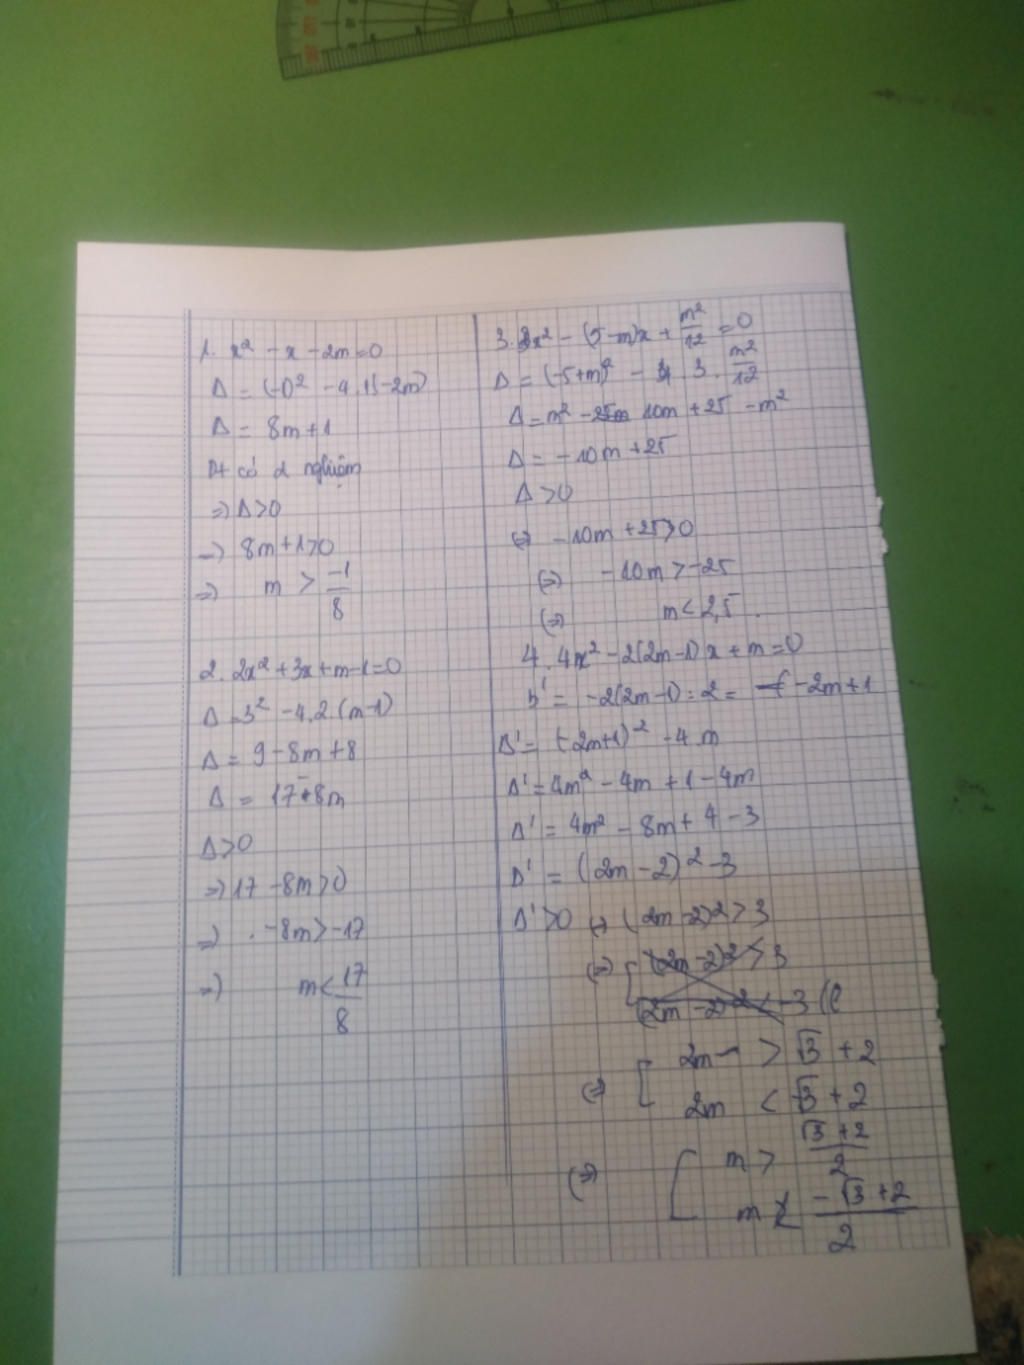 1. x² - x - 2m = 0
Δ = (-1)² - 4.1(-2m)
Δ = 8m + 1
Pt có 2 nghiệm
=> Δ > 0
=> 8m + 1 > 0
=> m > -1/8
2. 2x² + 3x + m - 1 = 0
Δ = 3² - 4.2.(m-1)
Δ = 9 - 8m + 8
Δ = 17 - 8m
Δ > 0
=> 17 - 8m > 0
=> -8m > -17
=> m < 17/8
3. 3x² - (5-m)x + m²/12 = 0
Δ = (-5+m)² - 4.3.m²/12
Δ = m² - 10m + 25 - m²
Δ = -10m + 25
Δ > 0
<=> -10m + 25 > 0
<=> -10m > -25
<=> m < 2,5.
4. 4x² - 2(2m-1)x + m = 0
b' = -2(2m-1) : 2 = -2m+1
Δ' = (-2m+1)² - 4.m
Δ' = 4m² - 4m + 1 - 4m
Δ' = 4m² - 8m + 4 - 3
Δ' = (2m-2)² - 3
Δ' > 0 <=> (2m-2)² > 3
<=> [ (2m-2)² > 3
(2m-2)² < -3 (
<=> [ 2m > √3 + 2
2m < -√3 + 2
<=> [ m > (√3+2)/2
m < (-√3+2)/2